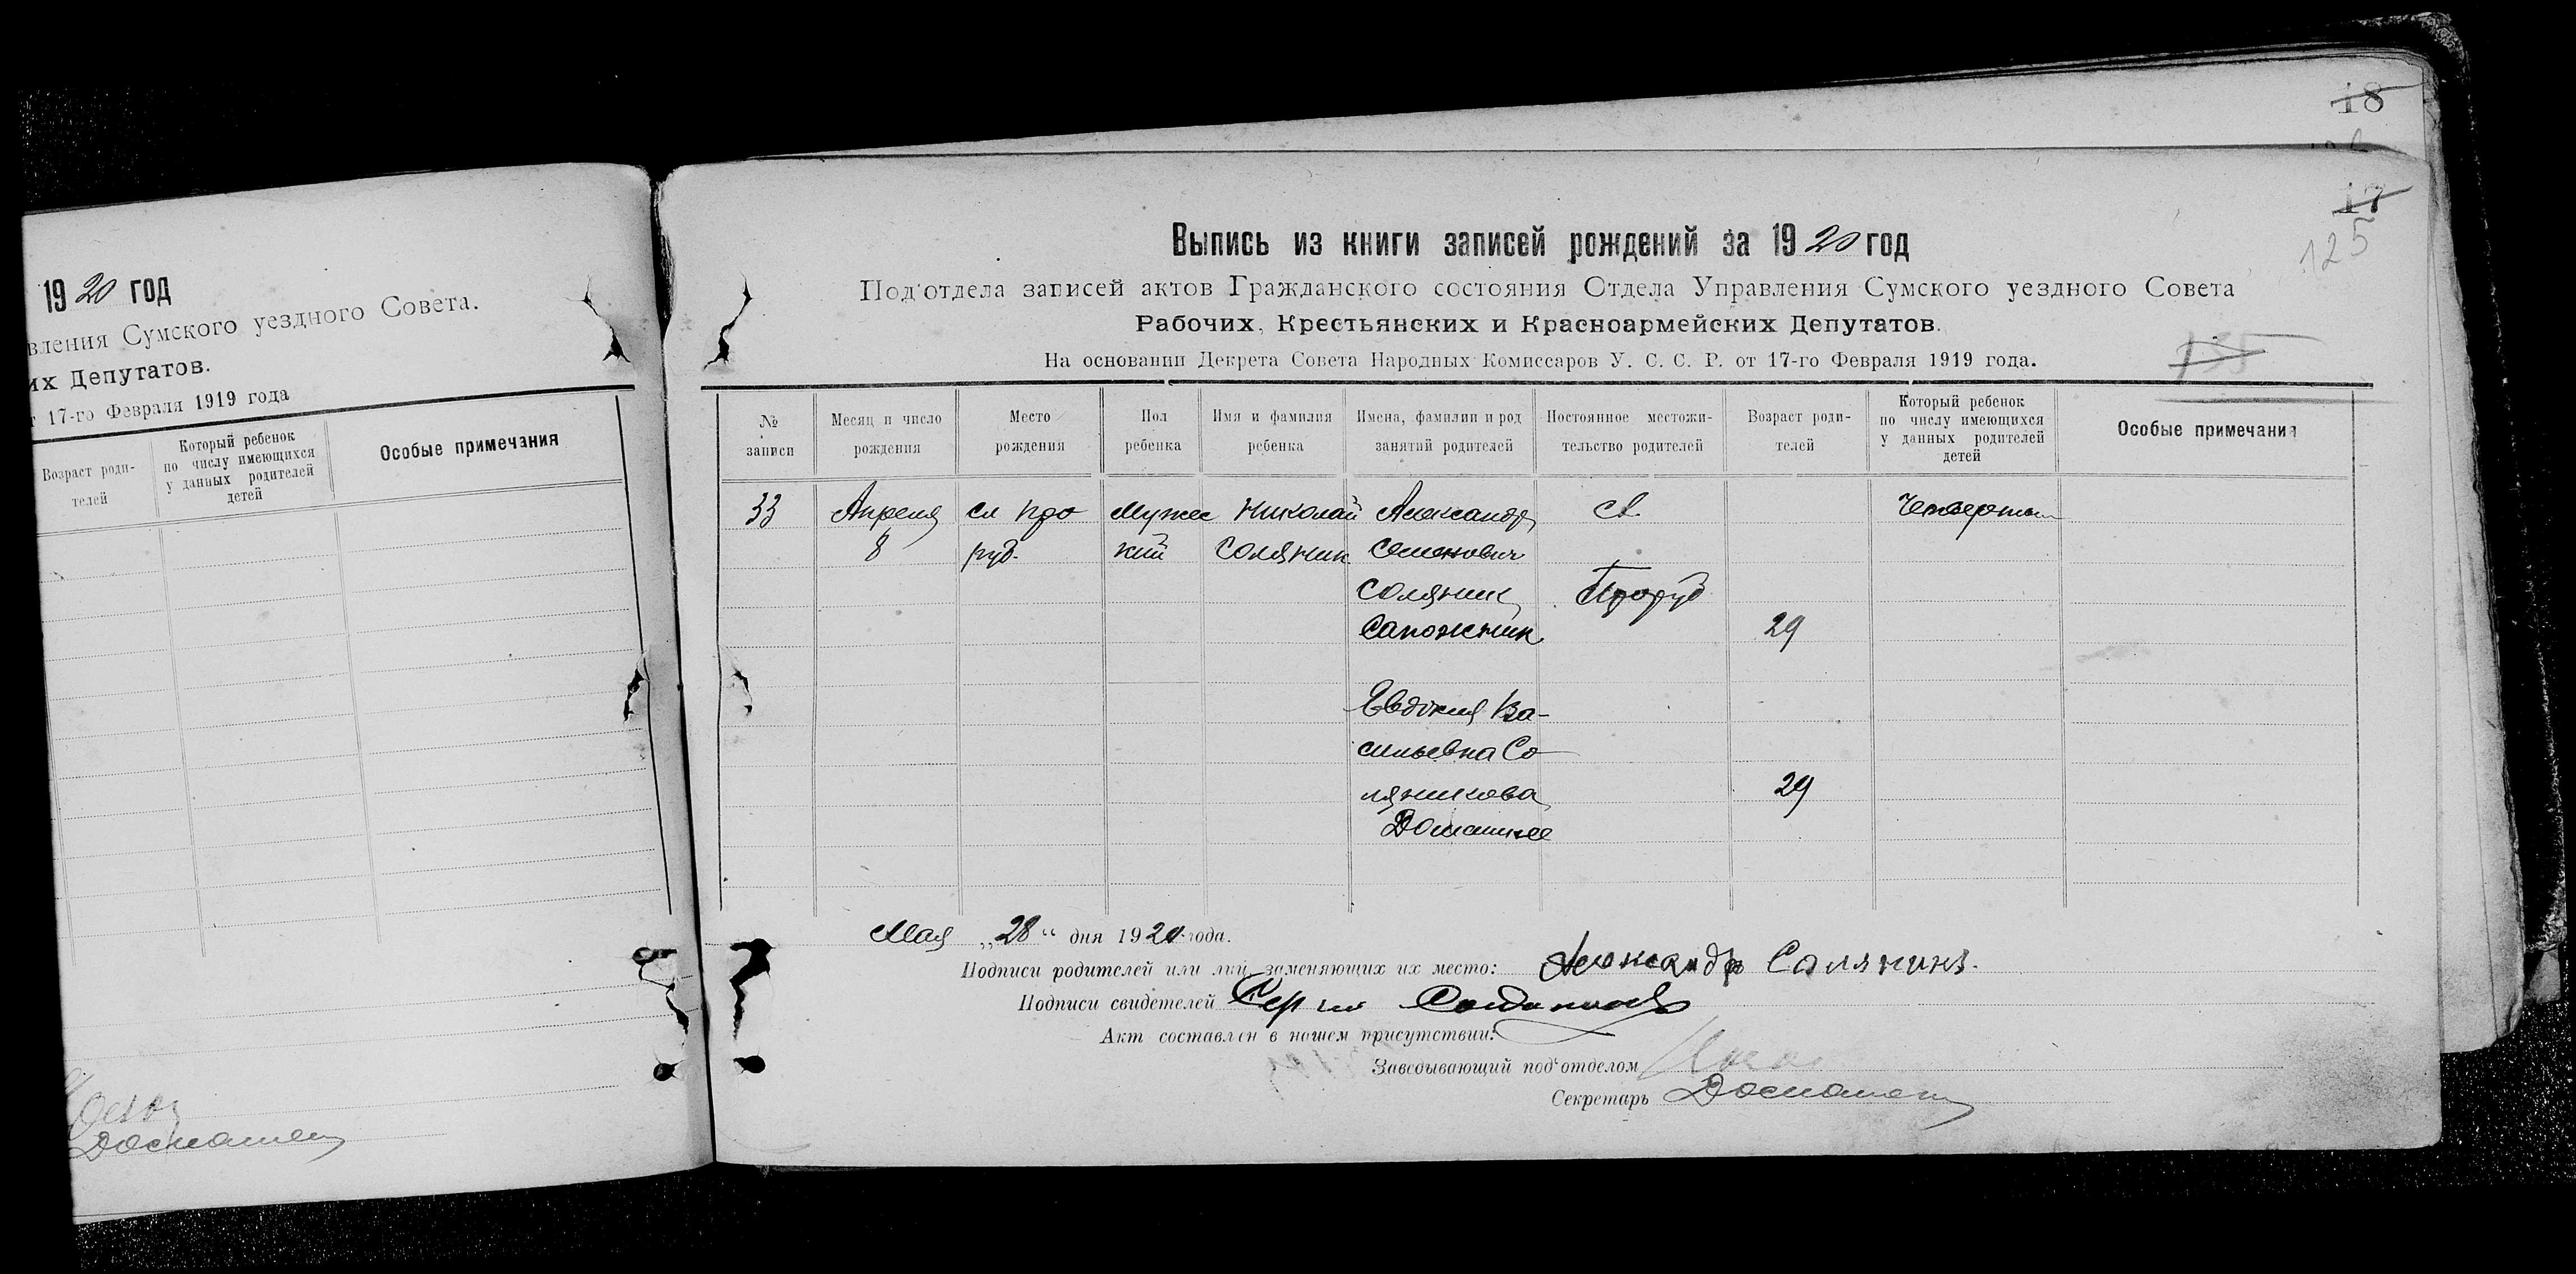 18
17
125
1920 год
вления Сумского уездного Совета.
их Депутатов.
т 17-го Февраля 1919 года
Возраст роди-
телей
Который ребенок
по числу имеющихся
у данных родителей
детей
Особые примечания
Доспашен
Выпись из книги записей рождений за 1920 год
Под'отдела записей актов Гражданского состояния Отдела Управления Сумского уездного Совета
Рабочих, Крестьянских и Красноармейских Депутатов.
На основании Декрета Совета Народных Комиссаров У. С. С. Р. от 17-го Февраля 1919 года.
№
записи
Месяц и число
рождения
Место
рождения
Пол
ребенка
Имя и фамилия
ребенка
Имена, фамилии и род
занятий родителей
Постоянное местожи-
тельство родителей
Возраст роди-
телей
Который ребенок
по числу имеющихся
у данных родителей
детей
Особые примечания
33
Апреля
8
сл Про
руб.
Мужес
кий
Николай
Соляник
Александр
Семенович
Соляник
Сапожник
Евдокия Ва-
сильевна Со
ляникова
Домашнее
Сл.
Проруб
29
29
Четвертый
Мая „28“ дня 1920 года.
Подписи родителей или лиц заменяющих их место: Александр Салянинъ.
Подписи свидетелей Сергей
Акт составлен в нашем присутствии:
Заведывающий под'отделом
Секретарь